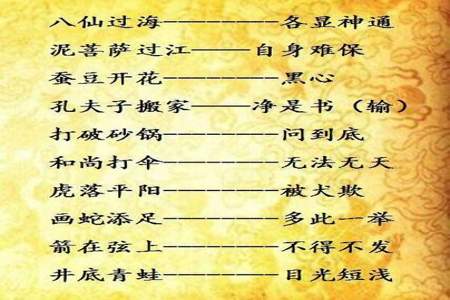 八仙过海--------各显神通
泥菩萨过江——自身难保
蚕豆开花--------黑心
孔夫子搬家——净是书（输）
打破砂锅--------问到底
和尚打伞--------无法无天
虎落平阳--------被犬欺
画蛇添足--------多此一举
箭在弦上--------不得不发
井底青蛙--------目光短浅